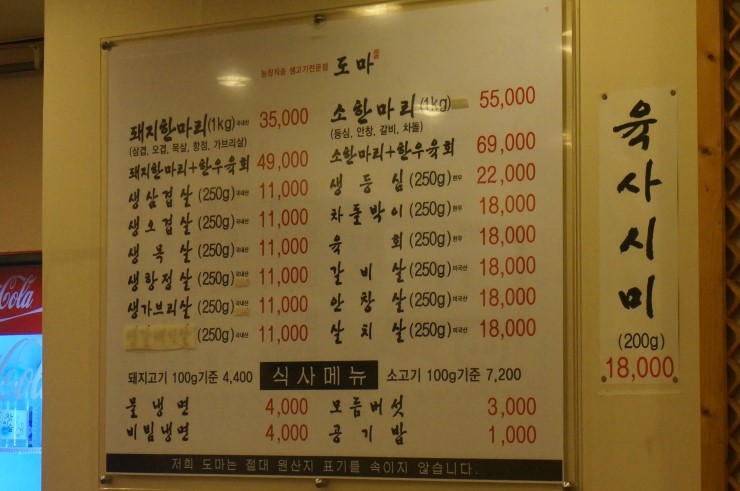 농장직송 생고기전문점 도마
돼지한마리(1kg) 국내산 35,000
(삼겹, 오겹, 목살, 항정, 가브리살)
돼지한마리+한우육회 49,000
생삼겹살 (250g) 국내산 11,000
생오겹살 (250g) 국내산 11,000
생 목 살 (250g) 국내산 11,000
생항정살 (250g) 국내산 11,000
생가브리살 (250g) 국내산 11,000
(250g) 국내산 11,000
소한마리(1kg) 55,000
(등심, 안창, 갈비, 차돌)
소한마리+한우육회 69,000
생 등 심 (250g) 한우 22,000
차돌박이 (250g) 한우 18,000
육 회 (250g) 한우 18,000
갈 비 살 (250g) 미국산 18,000
안 창 살 (250g) 미국산 18,000
살 치 살 (250g) 미국산 18,000
돼지고기 100g기준 4,400
식사메뉴
소고기 100g기준 7,200
물 냉 면 4,000
비빔냉면 4,000
모듬버섯 3,000
공 기 밥 1,000
저희 도마는 절대 원산지 표기를 속이지 않습니다.
육사시미
(200g)
18,000
Cola